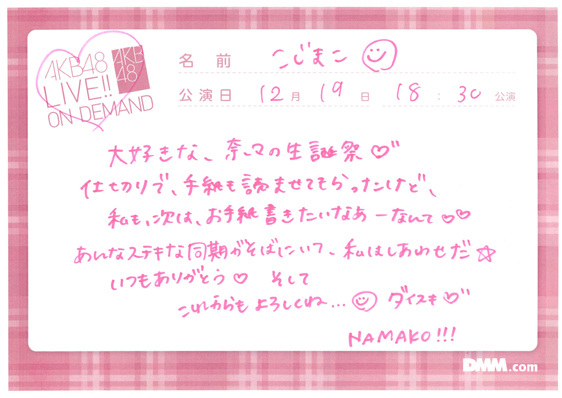 AKB48
LIVE!!
ON DEMAND
AKB
48
名前 こじまこ
公演日 12月 19日 18:30 公演
大好きな、奈々の生誕祭♡
仕切りで、手紙も読ませてもらったけど、
私も、次は、お手紙書きたいなあーなんて♡♡
あんなステキな同期がそばにいて、私はしあわせだ☆
いつもありがとう♡ そして
これからもよろしくね... ダイスキ♡
NAMAKO!!!
DMM.com